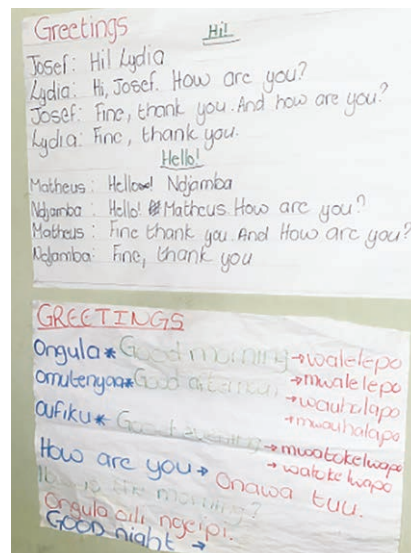 Greetings
Hi!
Josef: Hi! Lydia
Lydia: Hi, Josef. How are you?
Josef: Fine, thank you. And how are you?
Lydia: Fine, thank you.
Hello!
Matheus: Hello Ndjamba
Ndjamba: Hello! Matheus. How are you?
Matheus: Fine thank you. And How are you?
Ndjamba: Fine, thank you
GREETINGS
Ongula * Good morning → walelepo
omutenyaa * Good afternoon, → mwalelepo
→ wauhalapo
oufiku * Good evening → mwauhalapo
→ mwatokelwapo
How are you → → watokelwapo
Onawa tuu.
How is the morning?
Ongula aili, ngeipi.
Good night →